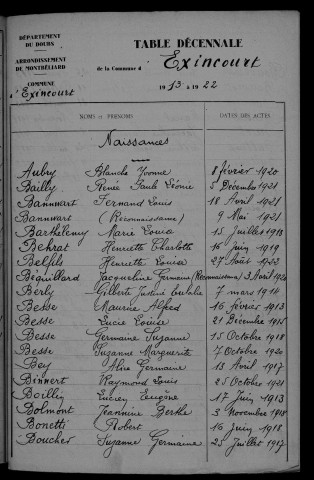 DÉPARTEMENT
DU DOUBS
ARRONDISSEMENT
DE MONTBÉLIARD
COMMUNE
d'Exincourt
TABLE DÉCENNALE
de la Commune d'Exincourt
1913 à 1922
NOMS et PRÉNOMS DATES DES ACTES
Naissances
Aubry Blanche Yvonne 8 février 1920
Bailly Renée Paule Léonie 5 Décembre 1921
Bannwart Fernand Louis 18 Avril 1921
Bannwart (Reconnaissance) 9 Mai 1921
Barthélemy Marie Louise 15 Juillet 1918
Behrat Henriette Charlotte 16 Juin 1919
Belfils Henriette Louise 27 Août 1922
Béquillard Jacqueline Germaine (Reconnaissance) 3 Avril 1920
Berly Gilberte Justine Eulalie 7 mars 1914
Besse Maurice Alfred 16 février 1913
Besse Lucie Louise 21 Décembre 1915
Besse Germaine Suzanne 15 Octobre 1918
Besse Suzanne Marguerite 7 Octobre 1920
Bey Aline Germaine 13 Avril 1917
Binnert Raymond Louis 25 Octobre 1921
Boilly Lucien Eugène 17 Juin 1913
Bolmont Jeannine Berthe 3 Novembre 1918
Bonetti Robert 16 Juin 1918
Boucher Suzanne Germaine 25 Juillet 1917